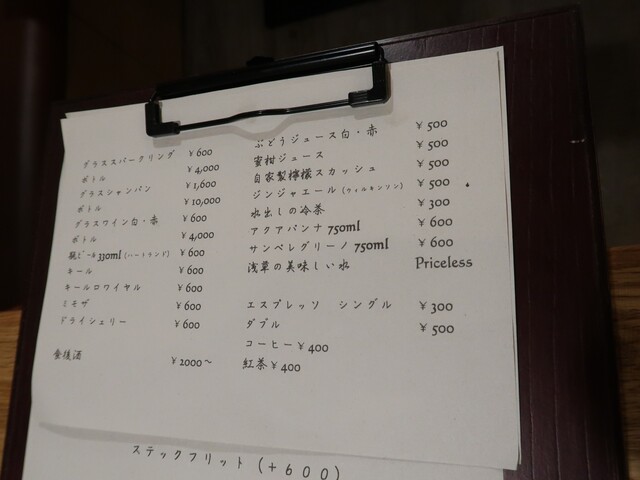 グラススパークリング ￥600
ボトル ￥4,000
グラスシャンパン ￥1,600
ボトル ￥10,000
グラスワイン白・赤 ￥600
ボトル ￥4,000
瓶ビール330ml (ハートランド) ￥600
キール ￥600
キールロワイヤル ￥600
ミモザ ￥600
ドライシェリー ￥600
食後酒 ￥2000～
ぶどうジュース白・赤 ￥500
蜜柑ジュース ￥500
自家製檸檬スカッシュ ￥500
ジンジャエール (ウィルキンソン) ￥500
水出しの冷茶 ￥300
アクアパンナ 750ml ￥600
サンペレグリーノ 750ml ￥600
浅草の美味しい水 Priceless
エスプレッソ シングル ￥300
ダブル ￥500
コーヒー ￥400
紅茶 ￥400
ステックフリット (+600)